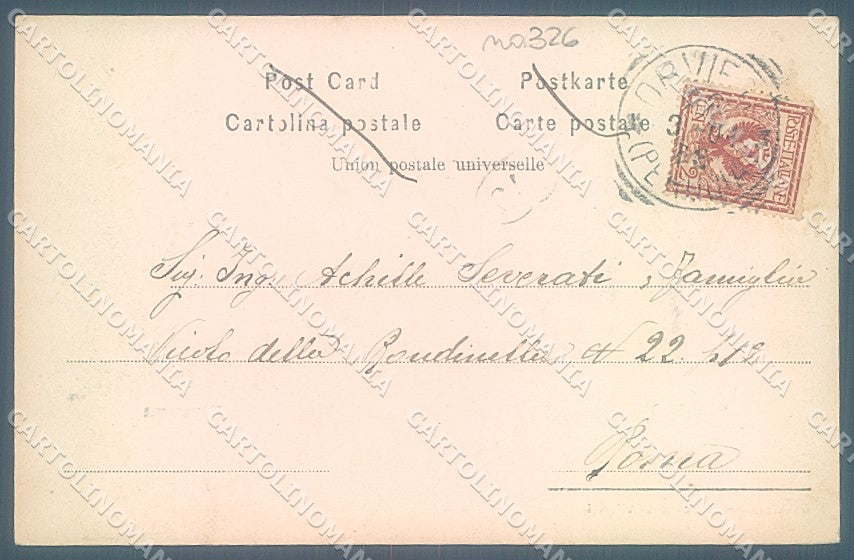 no. 326
Post Card Postkarte
Cartolina postale Carte postale
Union postale universelle
ORVIE
(PE
POSTE ITALIANE
CEN 2
Sig. Ing. Achille Severati e Famiglia
Vicolo della Rondinella N 22
Roma
CARTOLINOMANIA